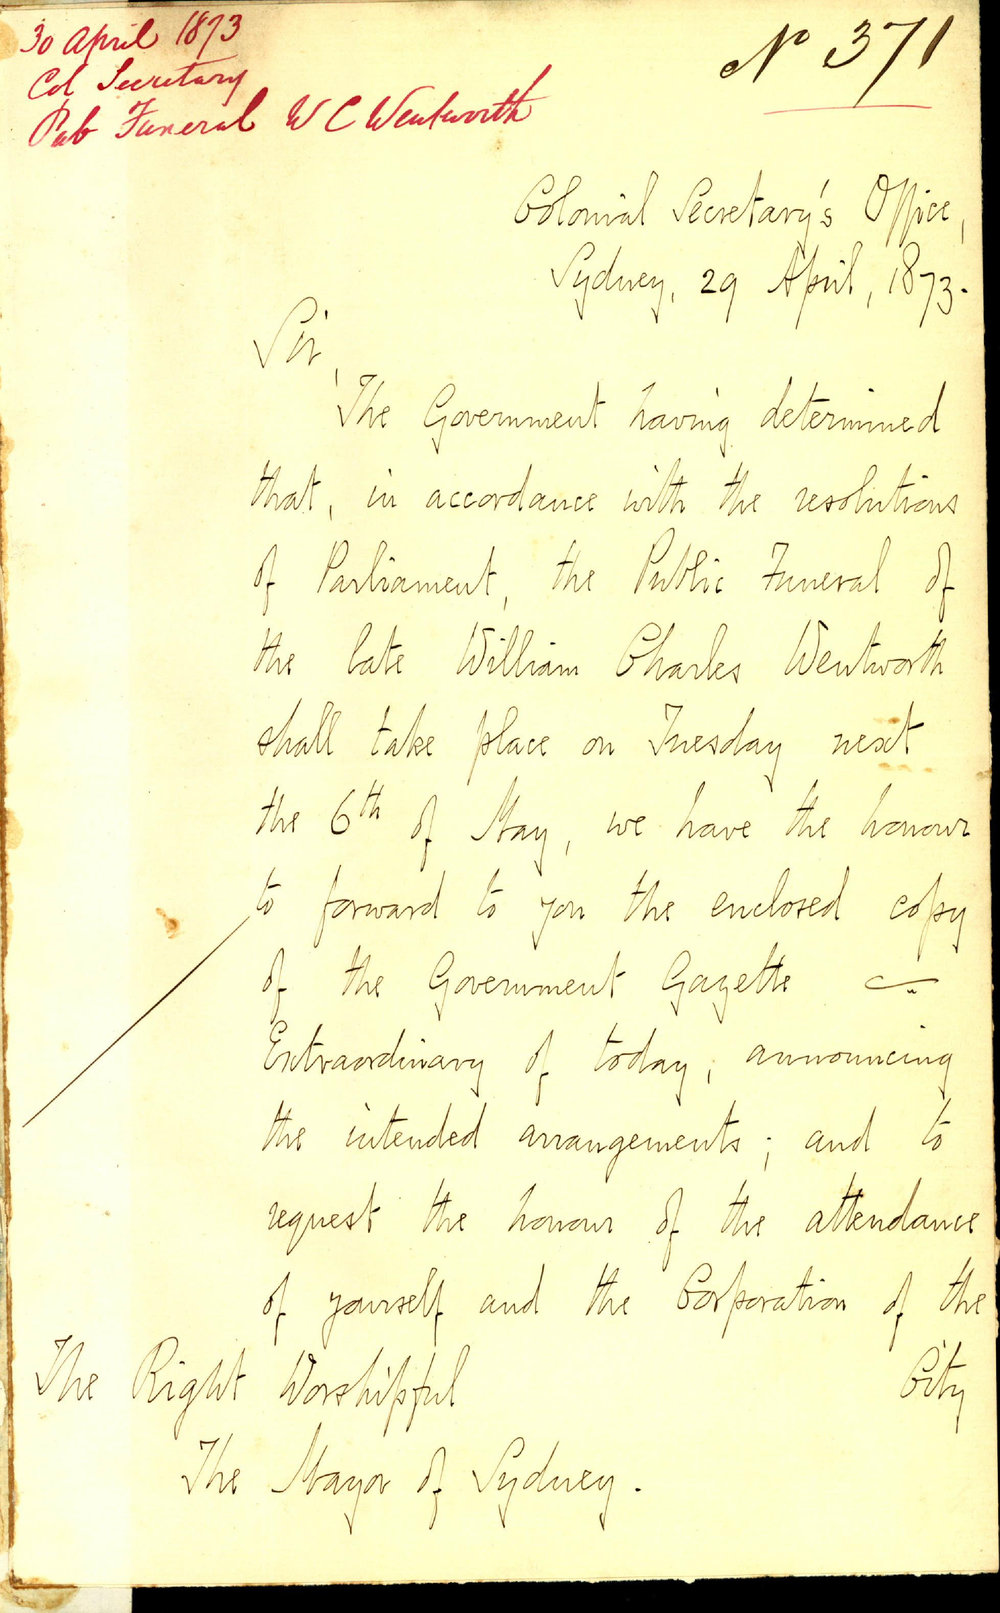 30 April 1873
Col Secretary
Pub Funeral W C Wentworth
No 371
Colonial Secretary's Office,
Sydney, 29 April, 1873.
Sir,
The Government having determined
that, in accordance with the resolutions
of Parliament, the Public Funeral of
the late William Charles Wentworth
shall take place on Tuesday next
the 6th of May, we have the honour
to forward to you the enclosed copy
of the Government Gazette
Extraordinary of today, announcing
the intended arrangements; and to
request the honour of the attendance
of yourself and the Corporation of the
City
The Right Worshipful
The Mayor of Sydney.